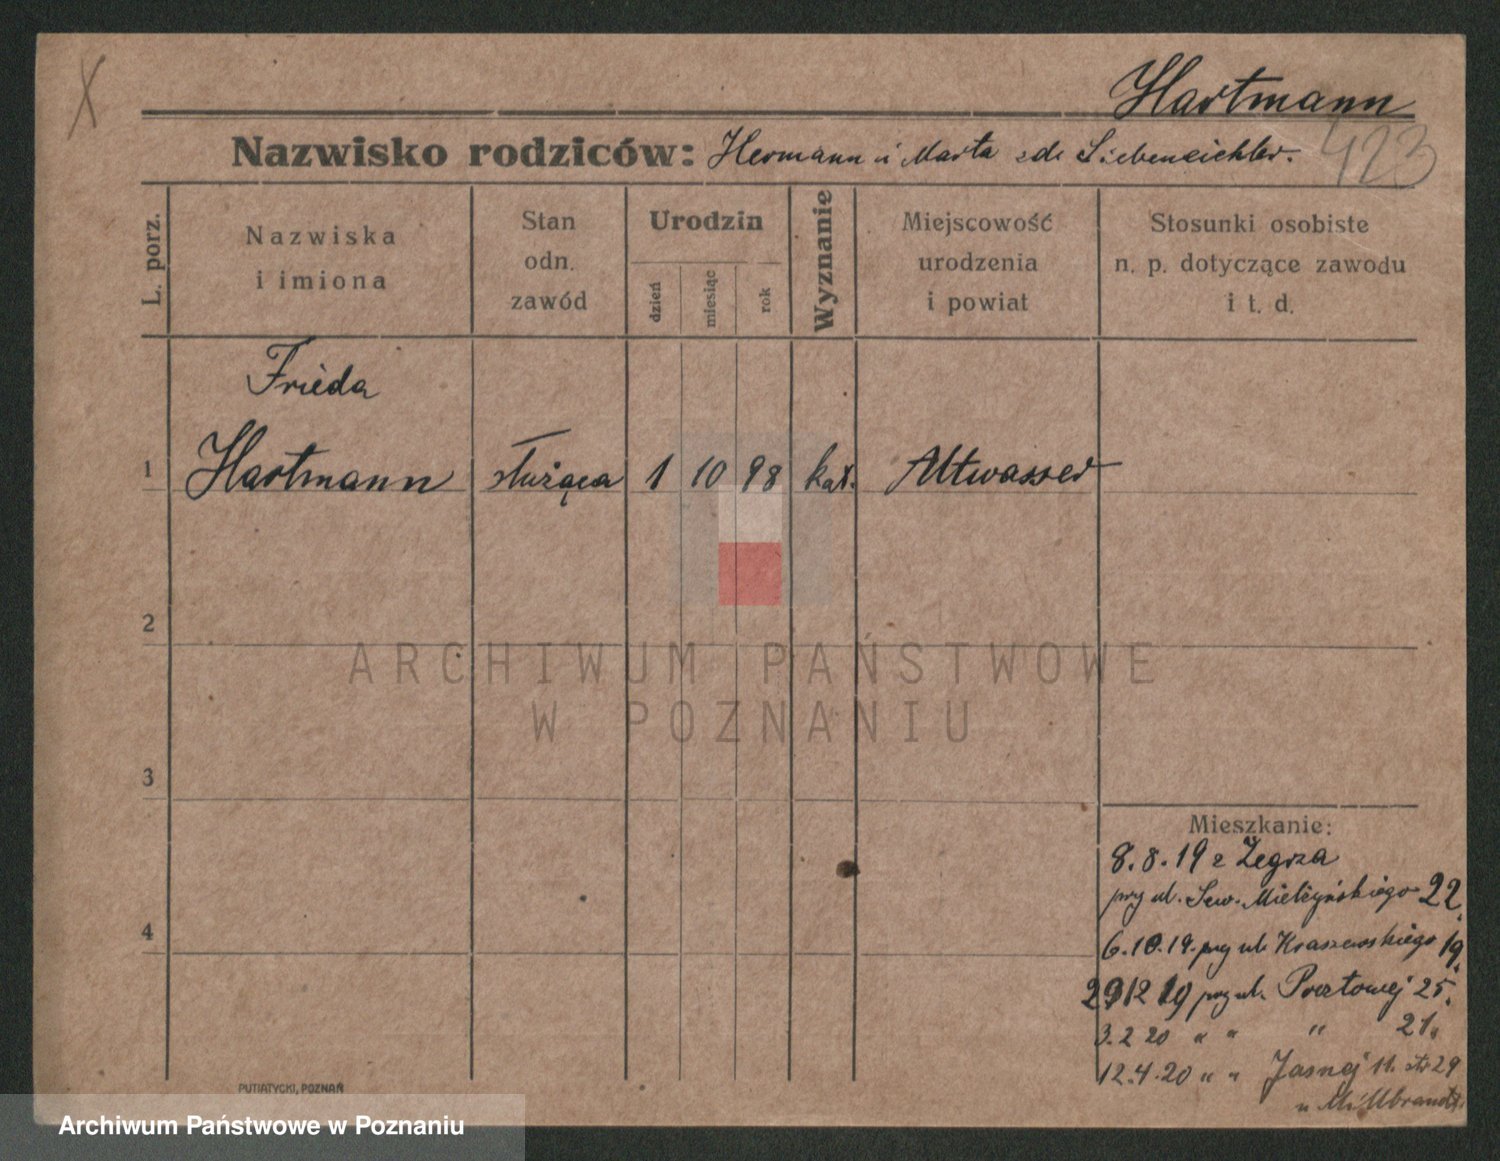 X
Hartmann
Nazwisko rodziców: Hermann i Marta
423
L. porz.
Nazwiska
i imiona
Stan
odn.
zawód
Urodzin
dzień
miesiąc
rok
Wyznanie
Miejscowość
urodzenia
i powiat
Stosunki osobiste
n. p. dotyczące zawodu
i t. d.
Frieda
1 Hartmann służąca 1 10 98 kat. Altwasser
2
ARCHIWUM PAŃSTWOWE
W POZNANIU
3
Mieszkanie:
8.8.19 z Żegrza
przy ul. Sew. Mielżyńskiego 22.
4
6.10.19. przy ul. Kraszewskiego 19.
29 12 19 przy ul. Pocztowej 25.
3.2 20 " " " 21.
12.4.20 " " Jasnej 11.
PUTIATYCKI, POZNAŃ
Archiwum Państwowe w Poznaniu